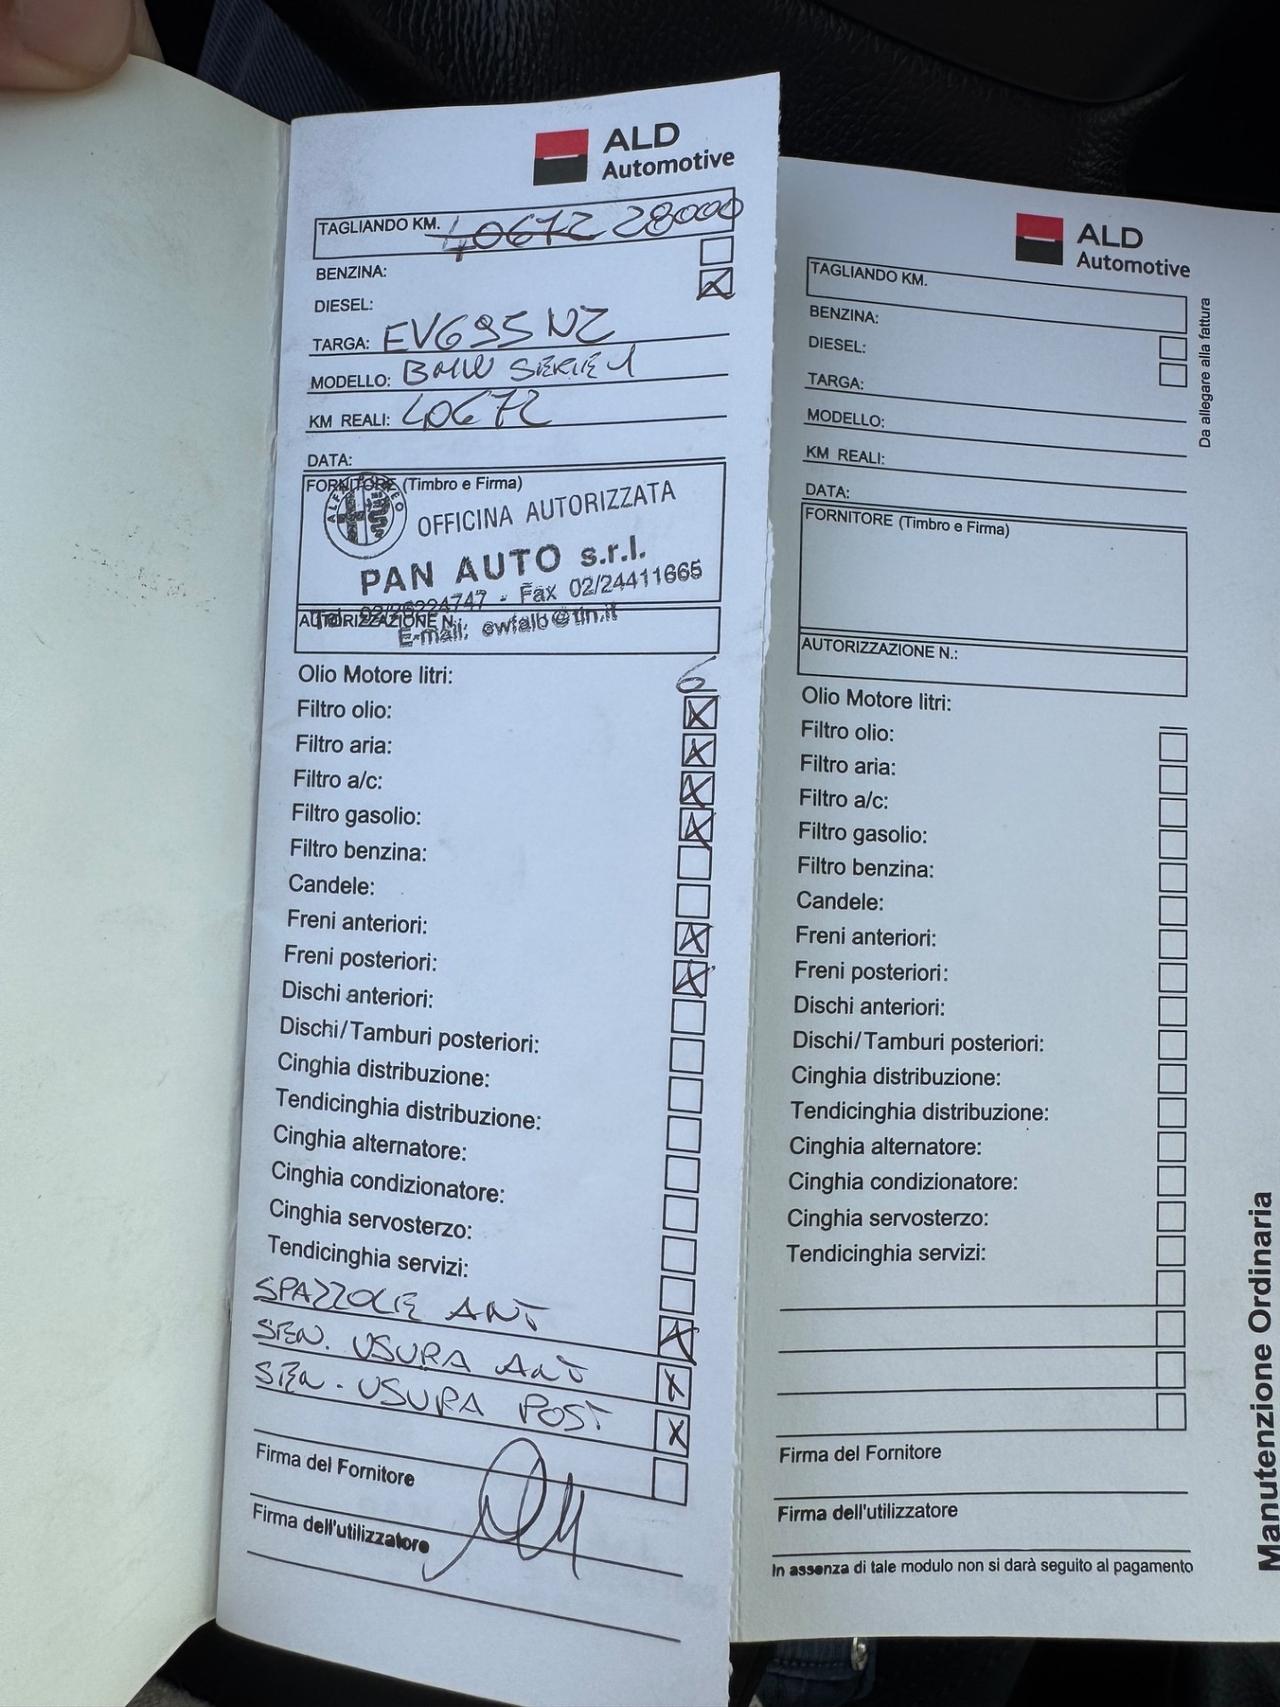 ALD
Automotive
TAGLIANDO KM. 40672 28000
BENZINA:
DIESEL:
TARGA: EV695NZ
MODELLO: BMW SERIE 1
KM REALI: 40672
DATA:
FORNITORE (Timbro e Firma)
OFFICINA AUTORIZZATA
PAN AUTO s.r.l.
Tel. 02/26224747 - Fax 02/24411665
AUTORIZZAZIONE N.:
E-mail:
Olio Motore litri: 6
Filtro olio:
Filtro aria:
Filtro a/c:
Filtro gasolio:
Filtro benzina:
Candele:
Freni anteriori:
Freni posteriori:
Dischi anteriori:
Dischi/Tamburi posteriori:
Cinghia distribuzione:
Tendicinghia distribuzione:
Cinghia alternatore:
Cinghia condizionatore:
Cinghia servosterzo:
Tendicinghia servizi:
SPAZZOLE ANT
SEN. USURA ANT
SEN. USURA POST
Firma del Fornitore
Firma dell'utilizzatore
ALD
Automotive
TAGLIANDO KM.
BENZINA:
DIESEL:
TARGA:
MODELLO:
KM REALI:
DATA:
FORNITORE (Timbro e Firma)
AUTORIZZAZIONE N.:
Olio Motore litri:
Filtro olio:
Filtro aria:
Filtro a/c:
Filtro gasolio:
Filtro benzina:
Candele:
Freni anteriori:
Freni posteriori:
Dischi anteriori:
Dischi/Tamburi posteriori:
Cinghia distribuzione:
Tendicinghia distribuzione:
Cinghia alternatore:
Cinghia condizionatore:
Cinghia servosterzo:
Tendicinghia servizi:
Firma del Fornitore
Firma dell'utilizzatore
In assenza di tale modulo non si darà seguito al pagamento
Da allegare alla fattura
Manutenzione Ordinaria